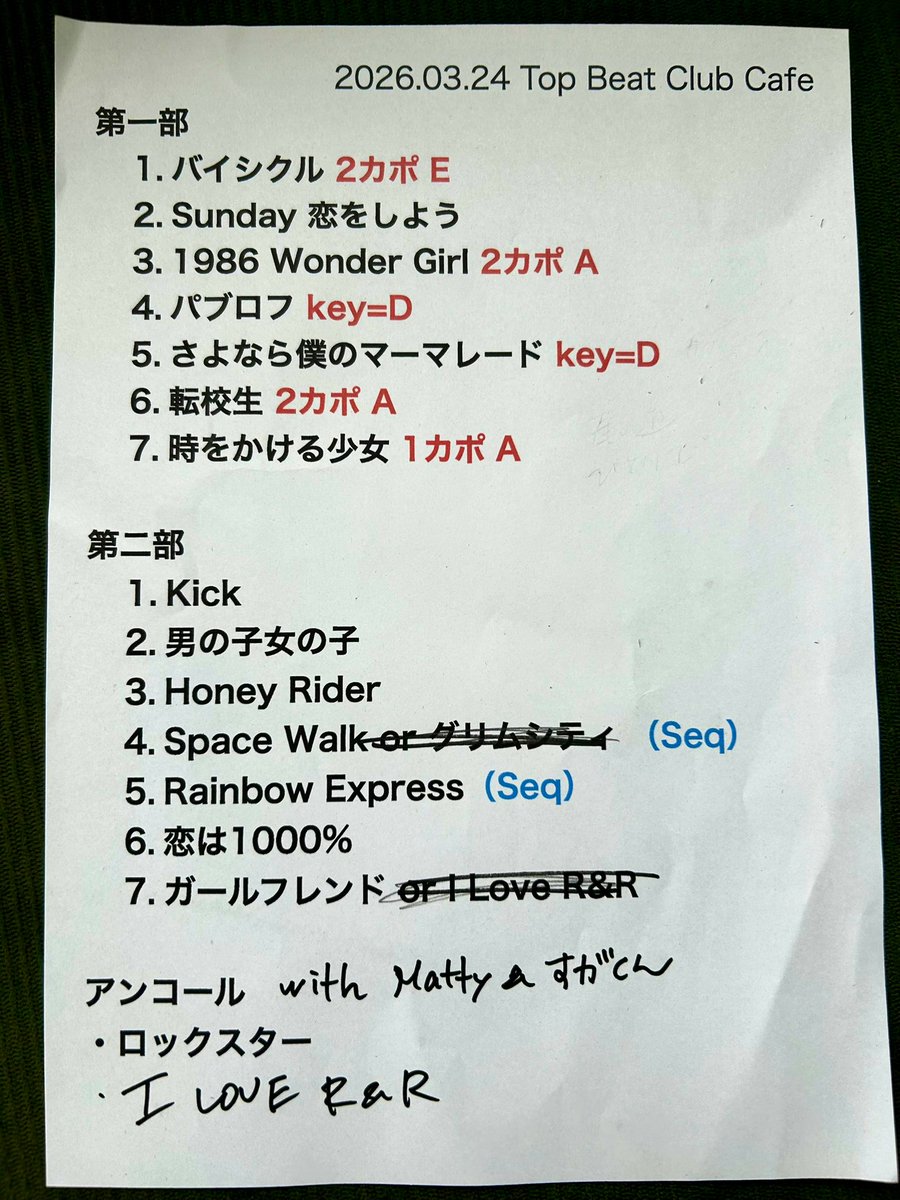 2026.03.24 Top Beat Club Cafe
第一部
1. バイシクル 2カポ E
2. Sunday 恋をしよう
3. 1986 Wonder Girl 2カポ A
4. パブロフ key=D
5. さよなら僕のマーマレード key=D
6. 転校生 2カポ A
7. 時をかける少女 1カポ A
第二部
1. Kick
2. 男の子女の子
3. Honey Rider
4. Space Walk or グリムシティ (Seq)
5. Rainbow Express (Seq)
6. 恋は1000%
7. ガールフレンド or I Love R&R
アンコール with Matty & すがくん
・ロックスター
・I LOVE R&R